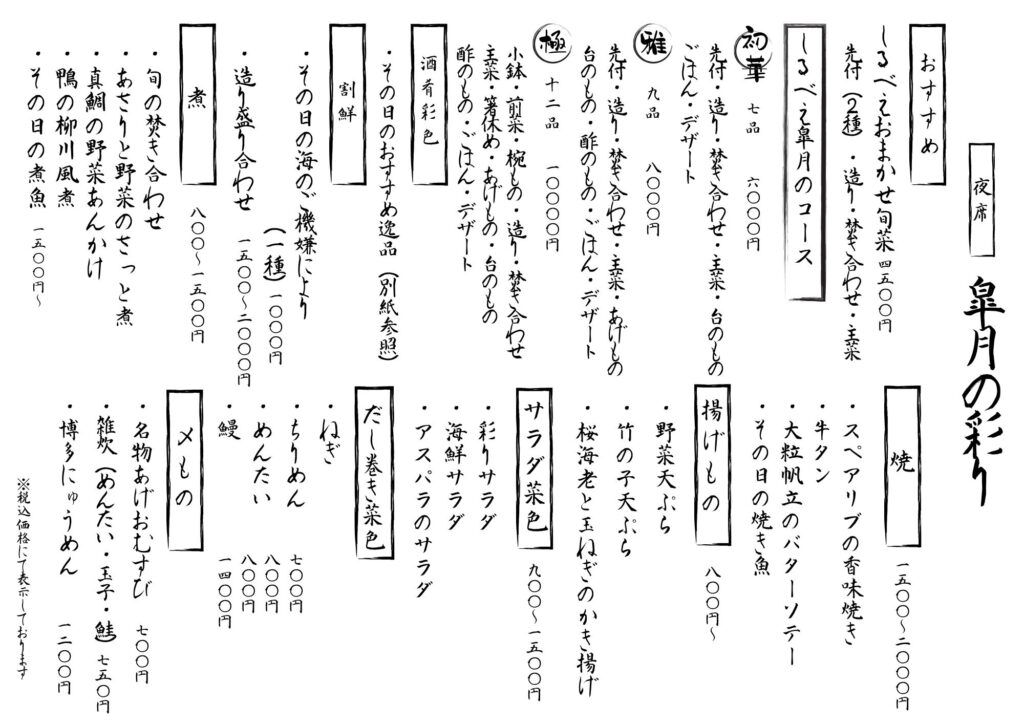 夜席
皐月の彩り
おすすめ
しるべえおまかせ旬菜 四五〇〇円
先付(2種)・造り・焚き合わせ・主菜
しるべえ皐月のコース
初華 七品 六〇〇〇円
先付・造り・焚き合わせ・主菜・台のもの
ごはん・デザート
雅 九品 八〇〇〇円
先付・造り・焚き合わせ・主菜・あげもの
台のもの・酢のもの・ごはん・デザート
極 十二品 一〇〇〇〇円
小鉢・前菜・椀もの・造り・焚き合わせ
主菜・箸休め・あげもの・台のもの
酢のもの・ごはん・デザート
酒肴彩色
・その日のおすすめ逸品(別紙参照)
割鮮
・その日の海のご機嫌により
(一種)一〇〇〇円
・造り盛り合わせ
一五〇〇~二〇〇〇円
煮 八〇〇~一五〇〇円
・旬の焚き合わせ
・あさりと野菜のさっと煮
・真鯛の野菜あんかけ
・鴨の柳川風煮
・その日の煮魚 一五〇〇円~
焼 一五〇〇~二〇〇〇円
・スペアリブの香味焼き
・牛タン
・大粒帆立のバターソテー
・その日の焼き魚
揚げもの 八〇〇円~
・野菜天ぷら
・竹の子天ぷら
・桜海老と玉ねぎのかき揚げ
サラダ菜色 九〇〇~一五〇〇円
・彩りサラダ
・海鮮サラダ
・アスパラのサラダ
だし巻き菜色
・ねぎ
・ちりめん 七〇〇円
・めんたい 八〇〇円
・鰻 八〇〇円
一四〇〇円
〆もの
・名物あげおむすび 七〇〇円
・雑炊(めんたい・玉子・鮭) 七五〇円
・博多にゅうめん 一二〇〇円
※税込価格にて表示しております